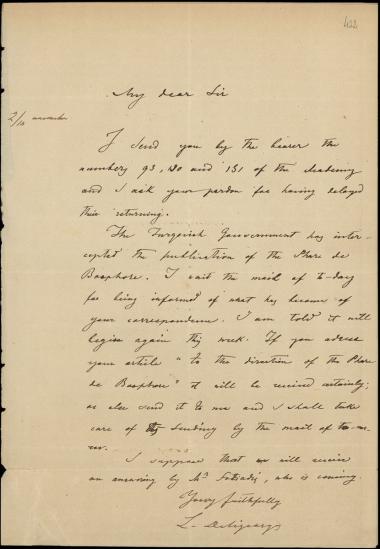 422
My dear Sir
2/14 november
I send you by the bearer the
numbers 93, 130 and 131 of the Academy
and I ask your pardon for having delayed
their returning.
The Turquish Gouvernment has inter-
cepted the publication of the Phare de
Bosphore. I wait the mail of to-day
for being informed of what has become of
your correspondence. I am told it will
begin again this week. If you adress
your article "to the direction of the Phare
de Bosphore" it will be received certainly;
or else send it to me and I shall take
care of sending by the mail of to-mor-
row.
I suppose that we will receive
an answering by Mr , who is coming.
Yours faithfully
L.